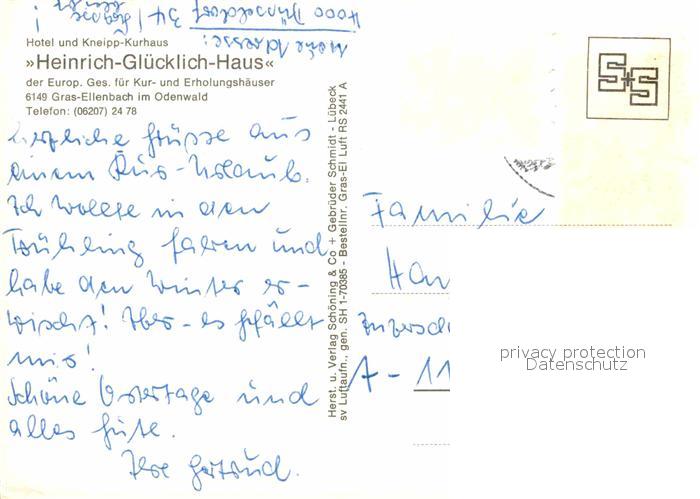 Meine Adresse:
4000 Düsseldorf 34
Hotel und Kneipp-Kurhaus
»Heinrich-Glücklich-Haus«
der Europ. Ges. für Kur- und Erholungshäuser
6149 Gras-Ellenbach im Odenwald
Telefon: (06207) 24 78
Herzliche Grüsse aus
einem Kur-Urlaub.
Ich wollte in den
Frühling fahren und
habe den Winter er-
wischt! Aber - es gefällt
mir!
Schöne Ostertage und
alles Gute.
Ihre Gertrud.
Herst. u. Verlag Schöning & Co + Gebrüder Schmidt - Lübeck
sv Luftaufn., gen. SH 1-70385 - Bestellnr. Gras-El Luft RS 2441 A
S+S
Familie
A - 11
privacy protection
Datenschutz